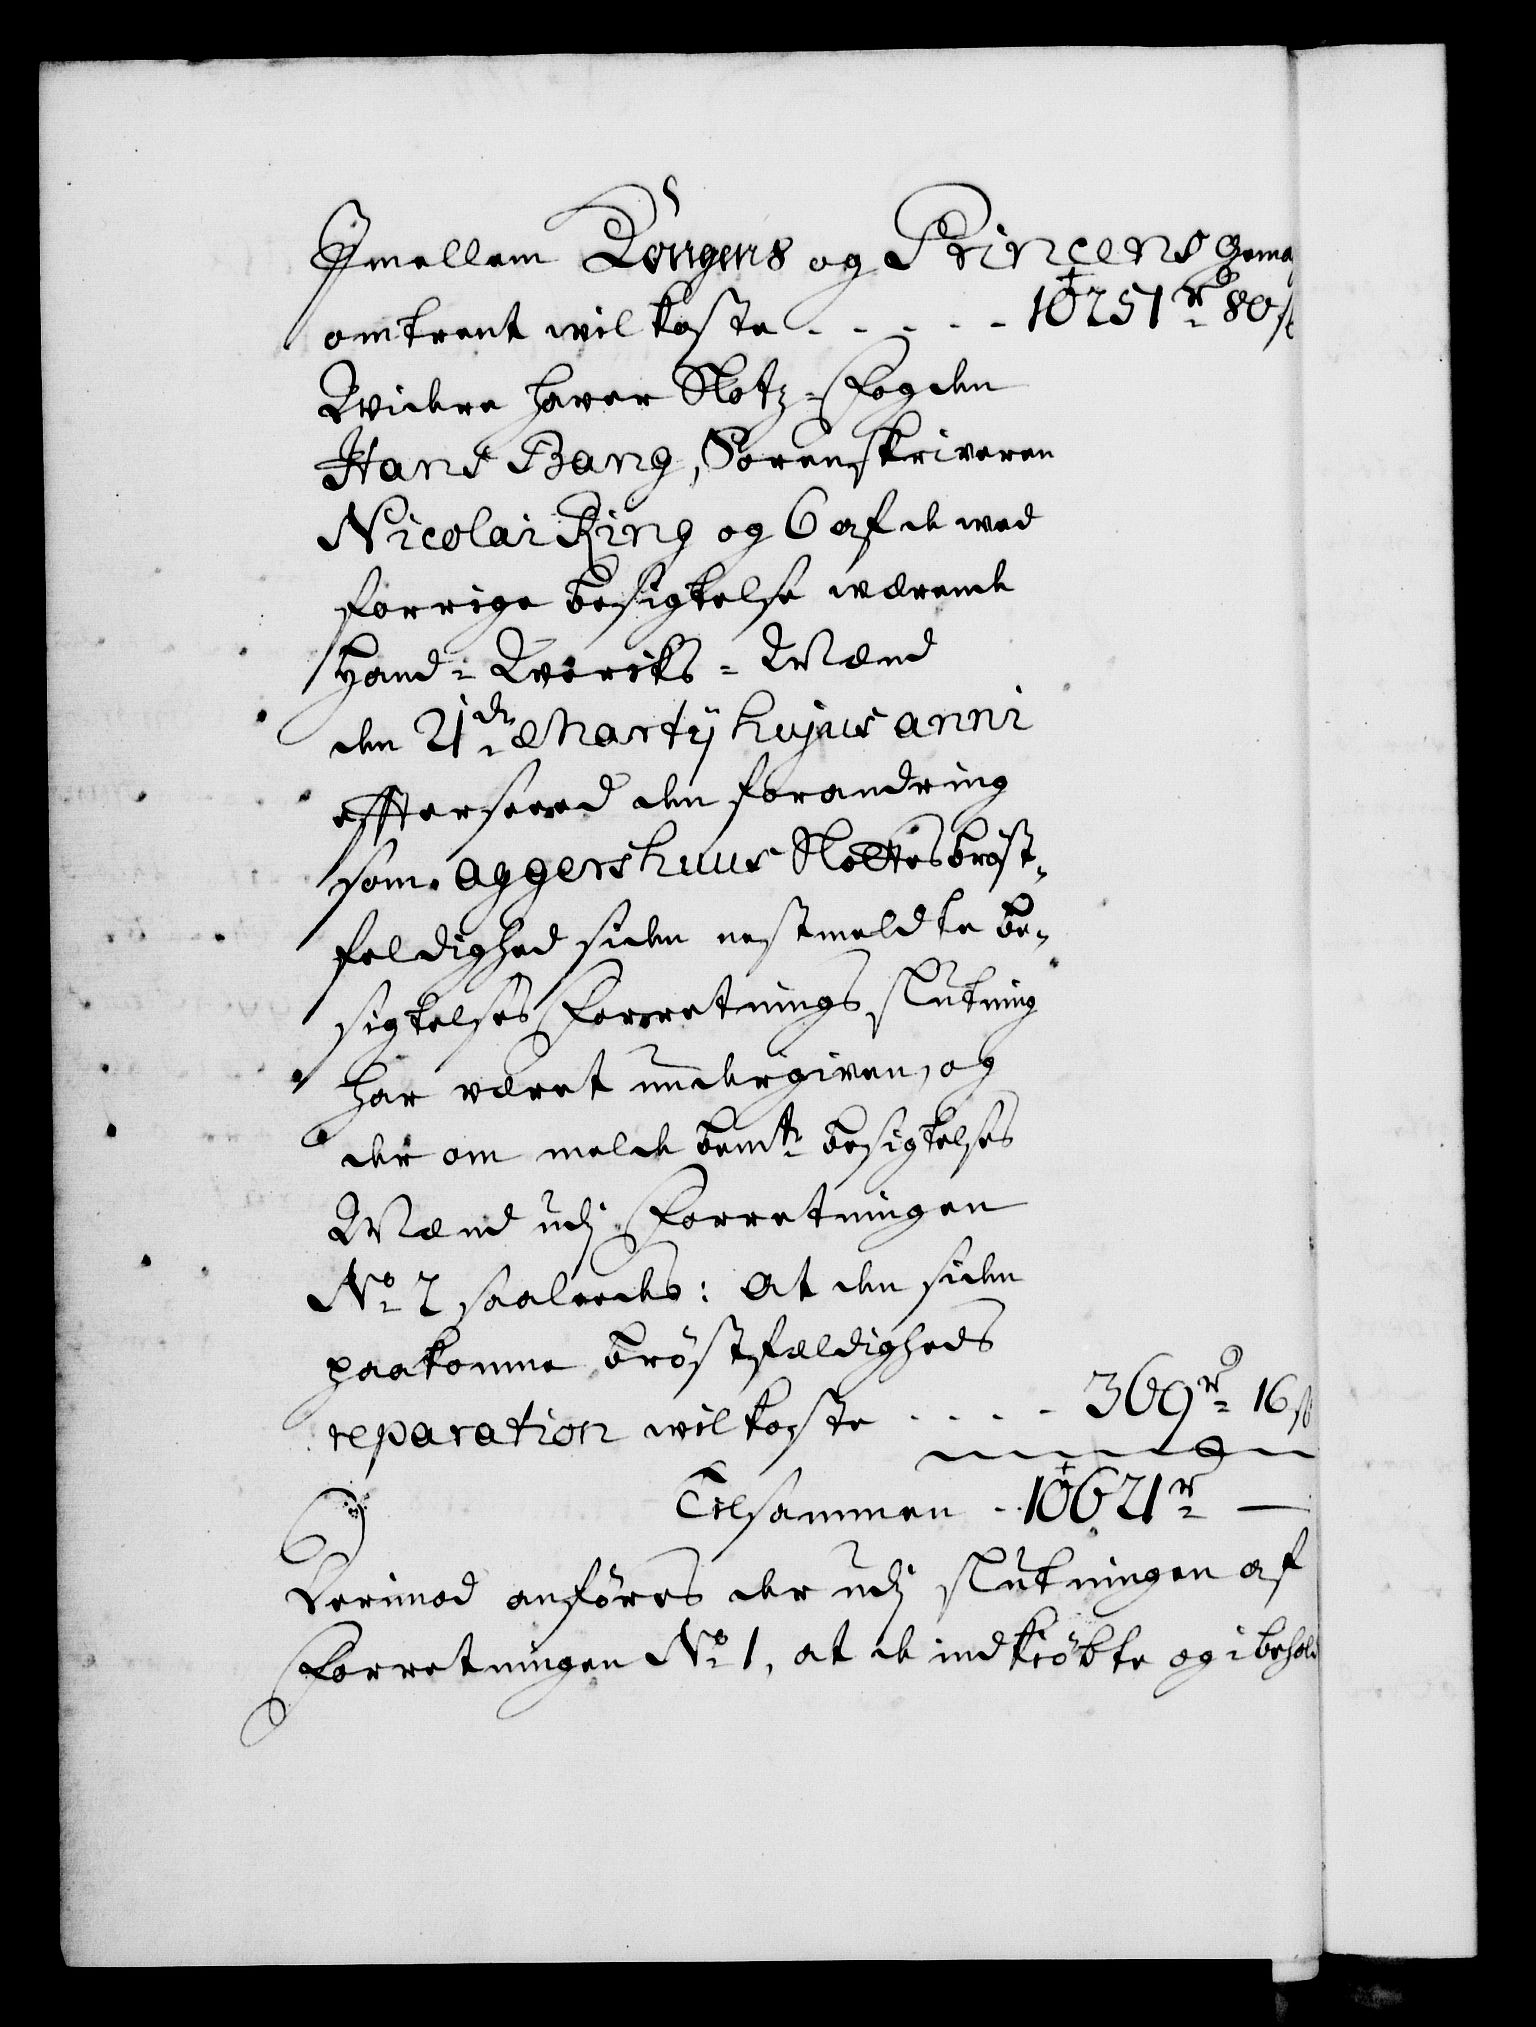 Jmellem Kongens og Princens Gema
omtrent wil koste - - - - - 10251 rd 80 s
Widere haver Slotz-Fogden
Hans Bang, Sorenskriveren
Nicolai Ring og 6 af de wed
forrige besigtelse wærende
Hand-Wercks-Mænd
den 21de Martij hujus anni
effterseed den forandring
som Aggershuus Slottes bröst-
feldighed siden nestmeldte be-
sigtelses Forretnings slutning
har været undergiven, og
der om melde bemte besigtelses
Mænd udj Forretningen
No 2 saaleedes: At den siden
paakomne bröstfældigheds
reparation wil koste - - - - 369 rd 16 s
Tilsammen - 10621 rd —
6)
Derimod anföres der udj slutningen af
Forretningen No 1, at de indkiöbte og i behold